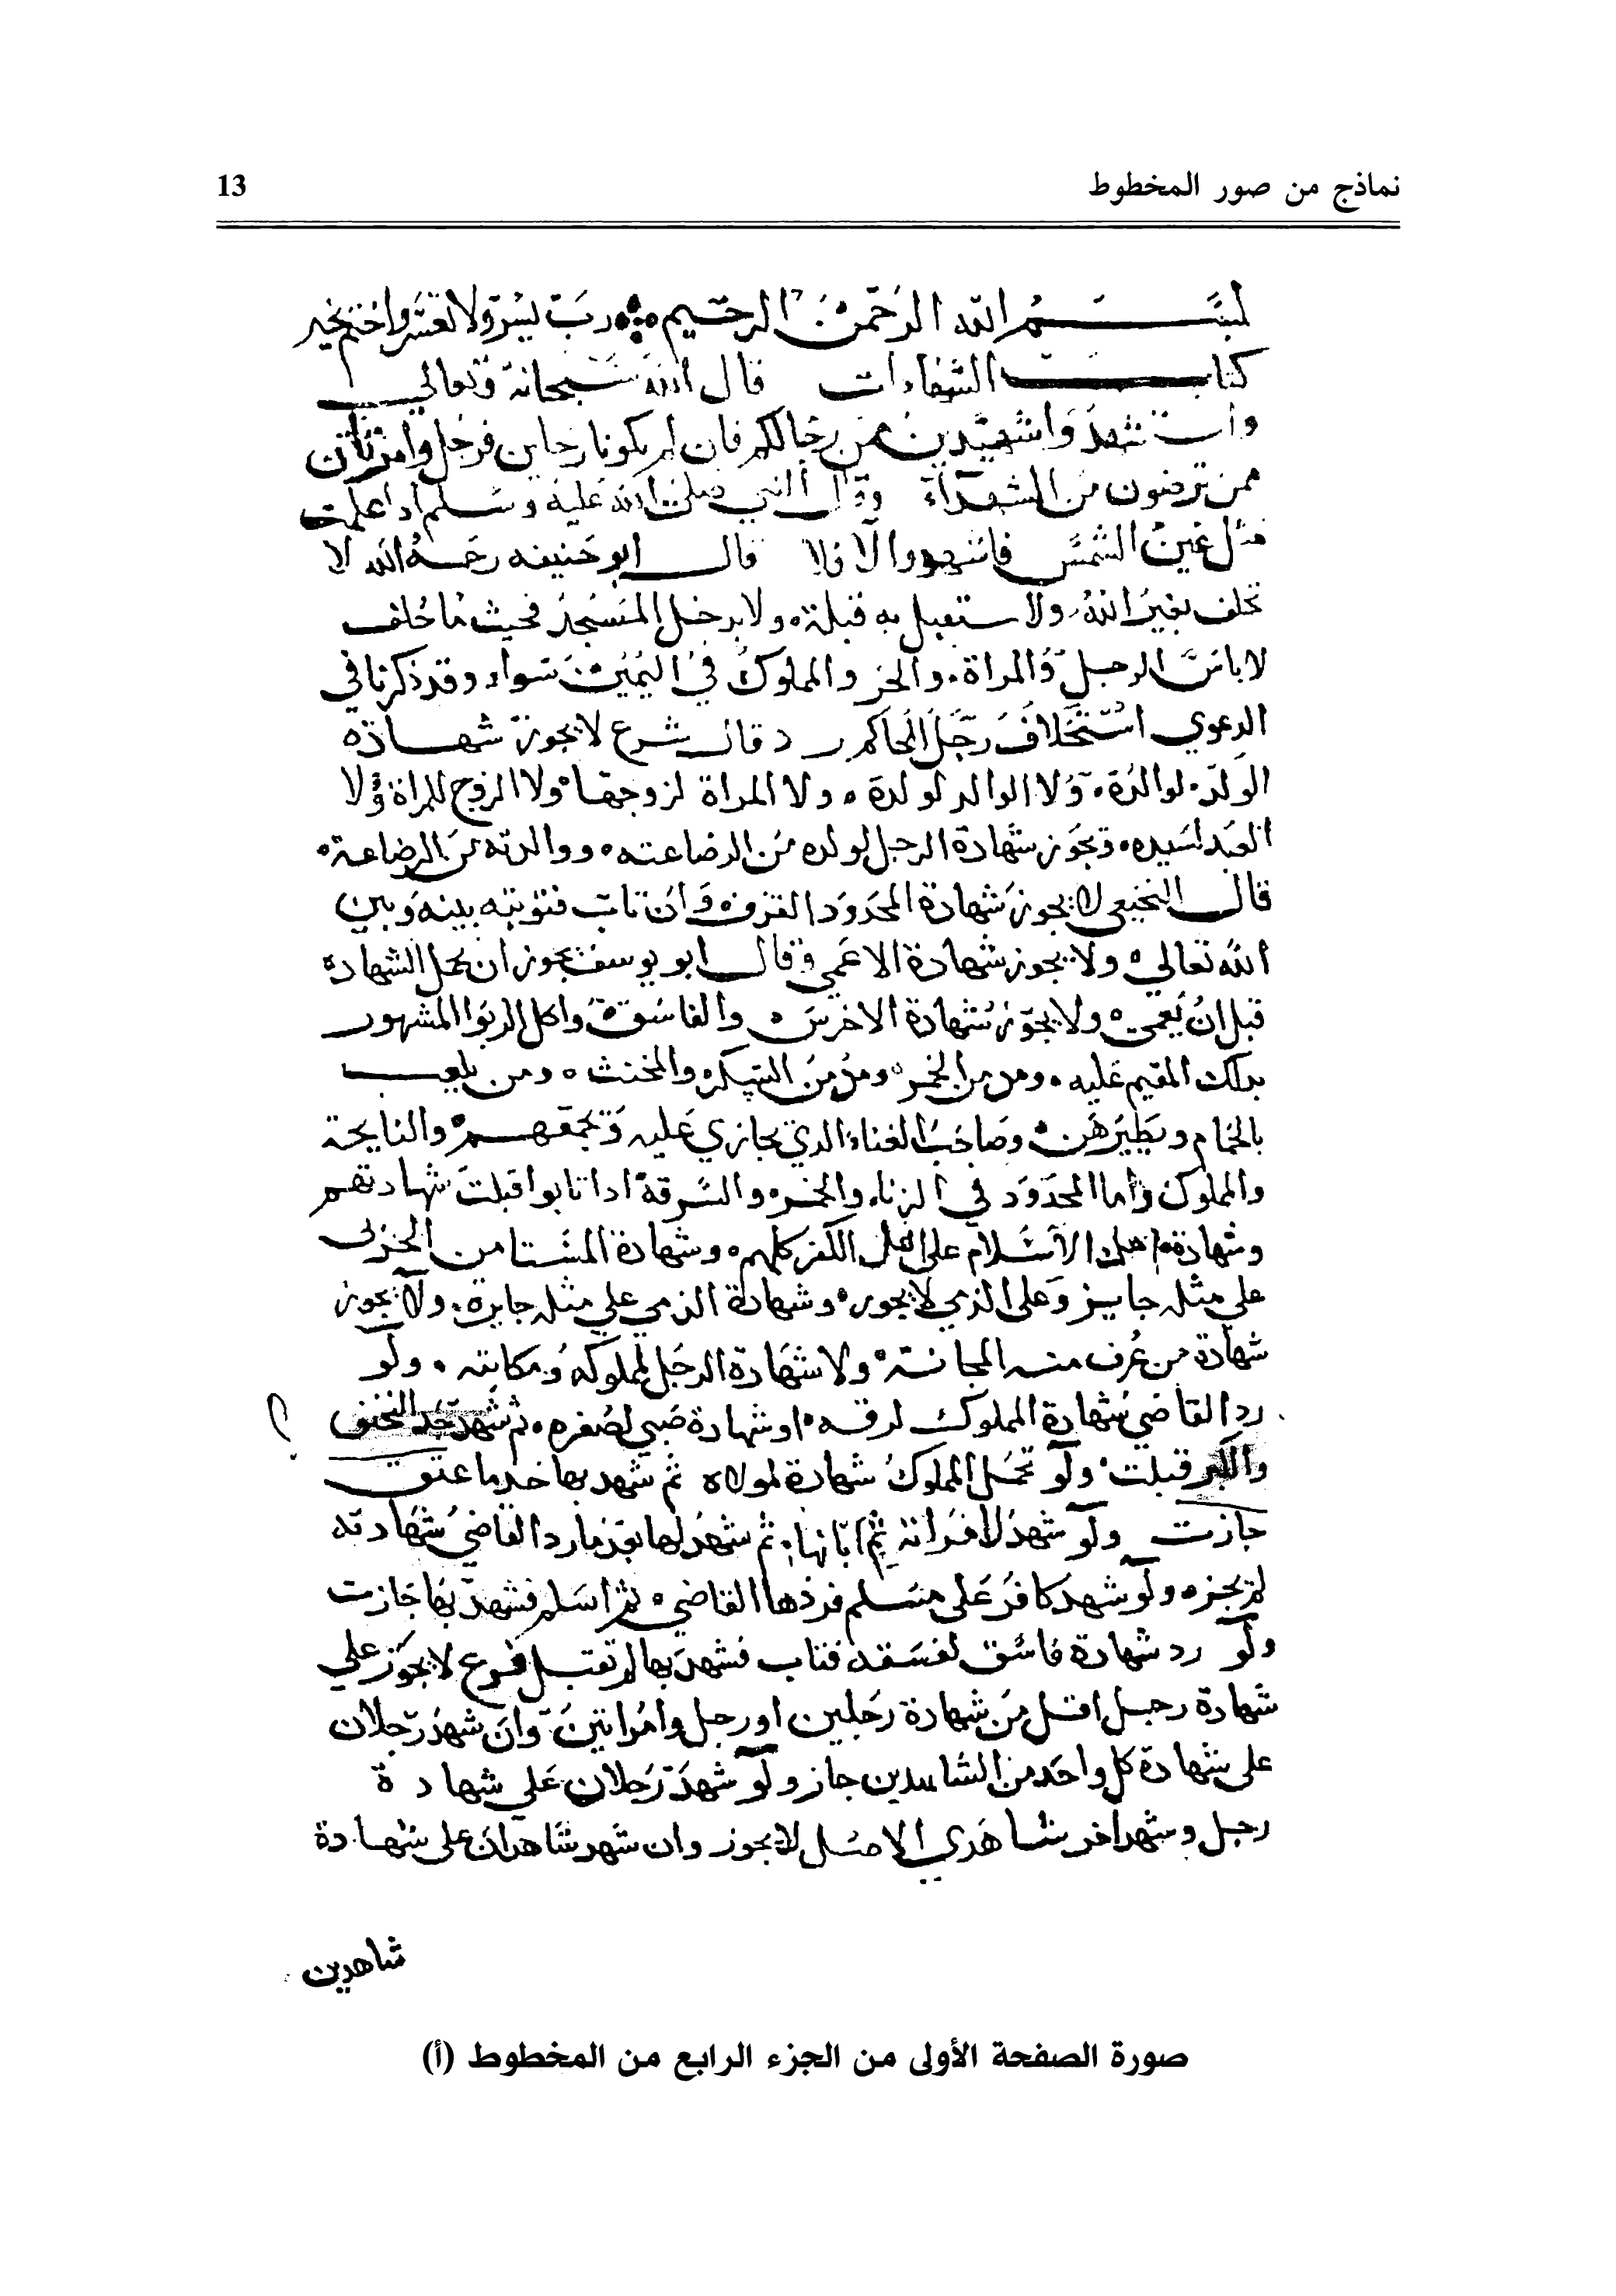 نماذج من صور المخطوط 13
بسم الله الرحمن الرحيم رب يسر ولا تعسر واختم بخير
كتاب الشهادات قال الله سبحانه وتعالى
واستشهدوا شهيدين من رجالكم فان لم يكونا رجلين فرجل وامرأتان
ممن ترضون من الشهداء وقال النبي صلى الله عليه وسلم اذا علمت
مثل عين الشمس فاشهد والا فلا قال ابو حنيفه رحمه الله لا
تحلف بغير الله ولا ستقبل به قبلة ولا يدخل المسجد فحيث ما حلف
لا باس الرجل والمراة والحر والمملوك في اليمين سواء وقد ذكرنا في
الدعوي استحلاف رجل الحاكم قال شرع لا يجوز شهاده
الولد لوالده ولا الوالد لولده ولا المراة لزوجها ولا الزوج للمراة ولا
العبد لسيده وتجوز شهادة الرجل لولده من الرضاعته ووالدته من الرضاعة
قال النخيعي لا يجوز شهادة المحدود القذف وان تاب فتوبته بينه وبين
الله تعالى ولا يجوز شهادة الاعمي وقال ابو يوسف يجوز ان يحمل الشهاده
قبل ان يعمى ولا يجوز شهادة الاخرس والفاسق واكل الربوا المشهور
بذلك المقيم عليه ومدمن الخمر ومدمن السكر والمخنث ومن يلعب
بالحمام ويطيرهن وصاحب الغناء الذي يجازي عليه وتجمعهم والنايحة
والمملوك واما المحدود في الزناء والخمر والسرقة اذا تابوا قبلت شهادتهم
وشهادة اهل الاسلام على اهل الكفر كلهم وشهادة المستامن الحربى
علي مثله جايز وعلى الذمي لا يجوز وشهادة الذمي علي مثله جايزة ولا يجوز
شهادة من عرف منه المجانة ولا شهادة الرجل لمملوكه ومكاتبه ولو
رد القاضي شهادة المملوك لرقه او شهادة صبي لصغره ثم شهد بعد العتق
والكبر قبلت ولو تحمل المملوك شهادة لمولاه ثم شهد بها بعد ما عتق
جازت ولو شهد لامراته ثم ابانها ثم شهد لها بعد ما رد القاضي شهادته
لم يجز ولو شهد كافر على مسلم فردها القاضي ثم اسلم فشهد بها جازت
ولو رد شهادة فاسق لفسقه فتاب فشهد بها لم تقبل فرع لا يجوز علي
شهادة رجل اقل من شهادة رجلين او رجل وامراتين وان شهد رجلان
على شهادة كل واحد من الشاهدين جاز ولو شهد رجلان علي شهادة
رجل وشهد اخر شاهدي الاصل لا يجوز وان شهد شاهدان على شهادة
شاهدين
صورة الصفحة الأولى من الجزء الرابع من المخطوط (أ)